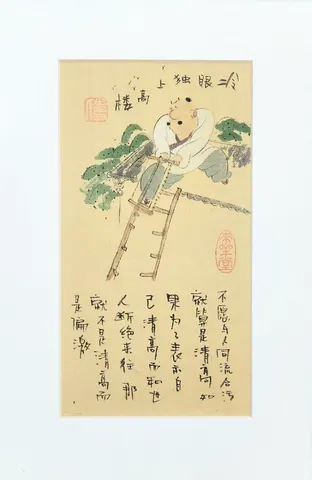 冷眼独上高楼
不愿与人同流合污
就算是清高如
果为了表示自
己清高而和世
人断绝来往那
就不是清高而
是偏激